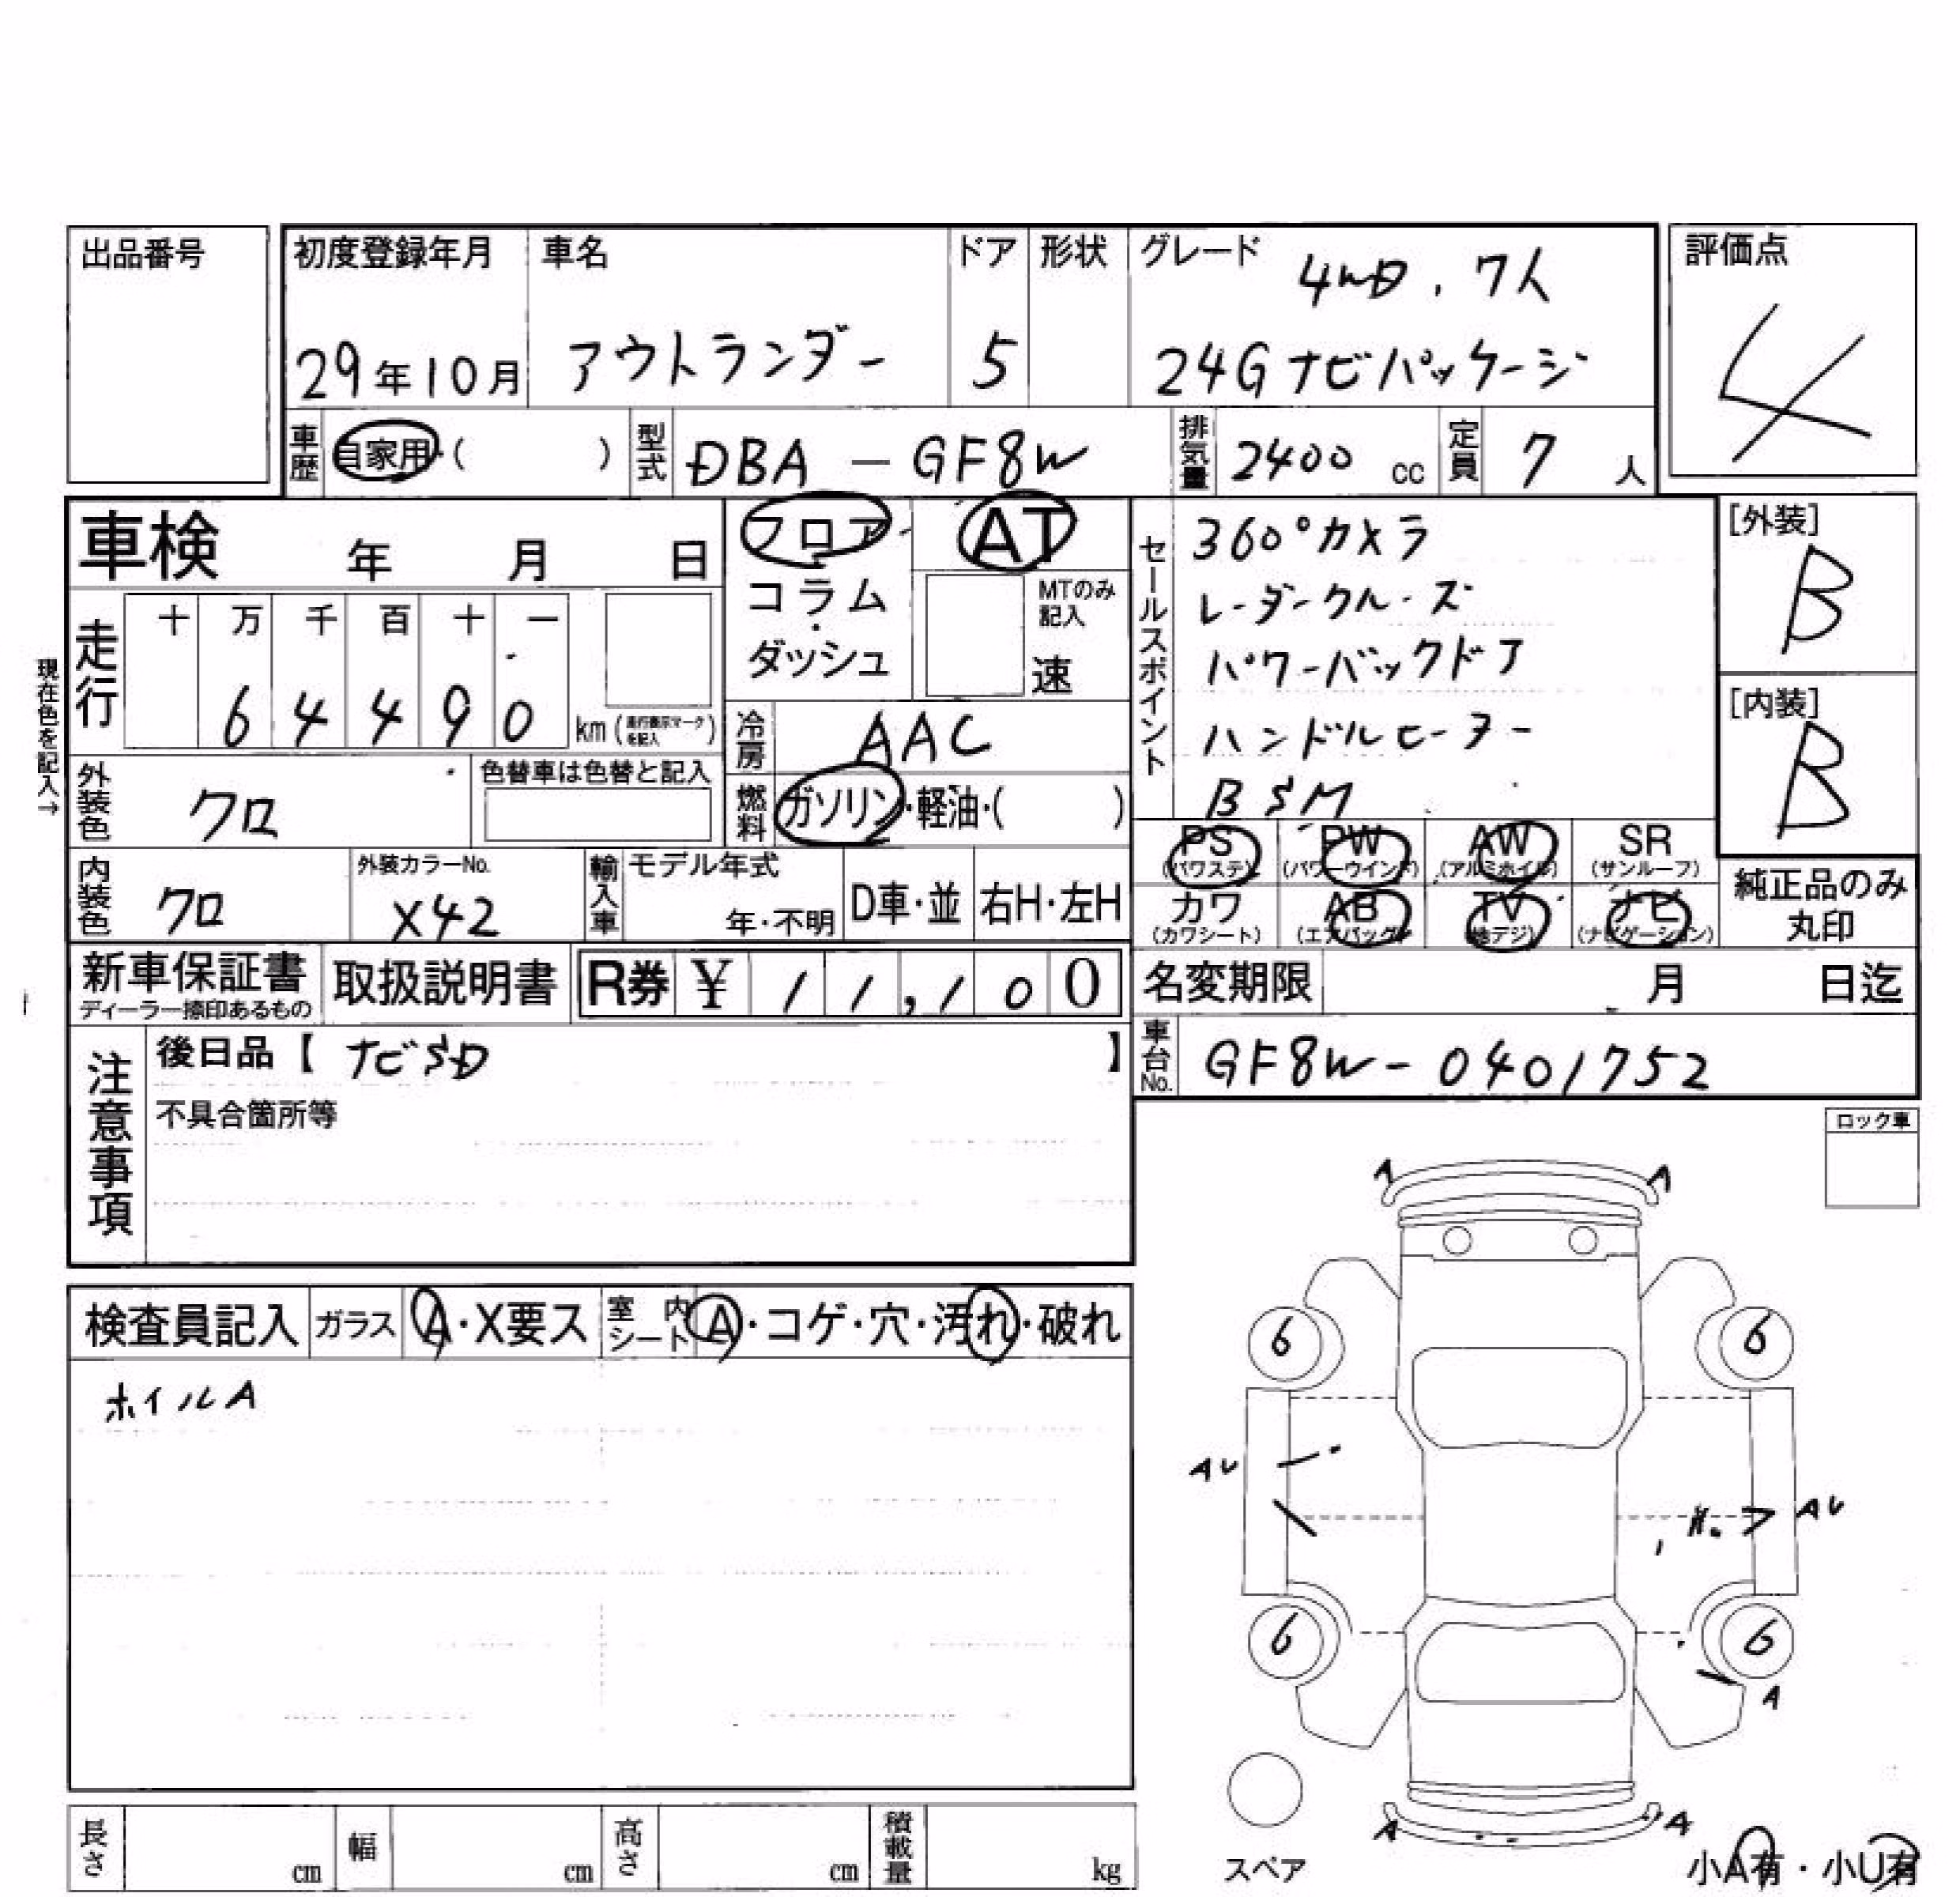 出品番号
初度登録年月 車名 ドア 形状 グレード 4WD、7人 評価点
29年10月 アウトランダー 5 24Gナビパッケージ 4
車歴 自家用・( ) 型式 DBA-GF8W 排気量 2400 cc 定員 7 人
車検 年 月 日
フロア・コラム・ダッシュ
AT
MTのみ記入
速
セールスポイント
360°カメラ
レーダークルーズ
パワーバックドア
ハンドルヒーター
BSM
[外装]
B
[内装]
B
現在色を記入→
走行 十 万 千 百 十 一
64490 km (走行表示マークを記入)
冷房 AAC
外装色 クロ 色替車は色替と記入
燃料 ガソリン・軽油・( )
PS (パワステ) PW (パワーウインド) AW (アルミホイル) SR (サンルーフ)
カワ (カワシート) AB (エアバッグ) TV (地デジ) ナビ (ナビゲーション)
純正品のみ丸印
内装色 クロ 外装カラーNo. X42 輸入車 モデル年式 年・不明 D車・並 右H・左H
新車保証書 ディーラー捺印あるもの 取扱説明書 R券 ¥ 11,100
名変期限 月 日迄
車台No. GF8W-0401752
注意事項
後日品【ナビSD】
不具合箇所等
ロック車
検査員記入 ガラス A・X要ス 室内シート A・コゲ・穴・汚れ・破れ
ホイルA
A A
6 6
AU
AU
6 6
A
A A
スペア
小A有・小U有
長さ cm 幅 cm 高さ cm 積載量 kg